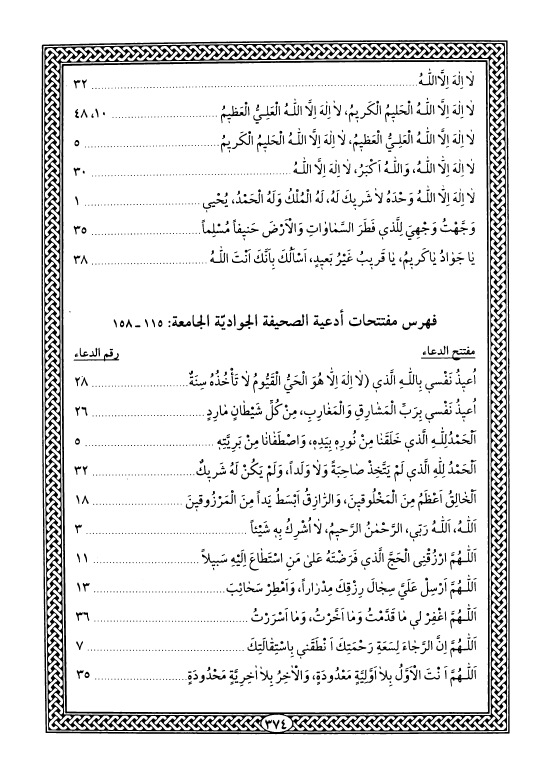 لٰا اِلٰهَ اِلَّا اللّٰهُ ........ ٣٢
لٰا اِلٰهَ اِلَّا اللّٰهُ الْحَليمُ الْكَريمُ، لٰا اِلٰهَ اِلَّا اللّٰهُ الْعَلِيُّ الْعَظيمُ ........ ١٠، ٤٨
لٰا اِلٰهَ اِلَّا اللّٰهُ الْعَلِيُّ الْعَظيمُ، لٰا اِلٰهَ اِلَّا اللّٰهُ الْحَليمُ الْكَريمُ ........ ٥
لٰا اِلٰهَ اِلَّا اللّٰهُ، وَاللّٰهُ اَكْبَرُ، لٰا اِلٰهَ اِلَّا اللّٰهُ ........ ٣٠
لٰا اِلٰهَ اِلَّا اللّٰهُ وَحْدَهُ لٰا شَريكَ لَهُ، لَهُ الْمُلْكُ وَلَهُ الْحَمْدُ، يُحْيي ........ ١
وَجَّهْتُ وَجْهِيَ لِلَّذي فَطَرَ السَّمٰاوٰاتِ وَالْاَرْضَ حَنيفاً مُسْلِماً ........ ٣٥
يٰا جَوٰادُ يٰاكَريمُ، يٰا قَريبُ غَيْرُ بَعيدٍ، اَسْأَلُكَ بِاَنَّكَ اَنْتَ اللّٰهُ ........ ٣٨
فهرس مفتتحات أدعية الصحيفة الجواديّة الجامعة: ١١٥ ـ ١٥٨
مفتتح الدعاء رقم الدعاء
اُعيذُ نَفْسي بِاللّٰهِ الَّذي (لٰا اِلٰهَ اِلّٰا هُوَ الْحَيُّ الْقَيُّومُ لٰا تَأْخُذُهُ سِنَةٌ ........ ٢٨
اُعيذُ نَفْسي بِرَبِّ الْمَشٰارِقِ وَالْمَغٰارِبِ، مِنْ كُلِّ شَيْطٰانٍ مٰارِدٍ ........ ٢٦
اَلْحَمْدُلِلّٰهِ الَّذي خَلَقَنٰا مِنْ نُورِهِ بِيَدِهِ، وَاصْطَفٰانٰا مِنْ بَرِيَّتِهِ ........ ٥
اَلْحَمْدُ لِلّٰهِ الَّذي لَمْ يَتَّخِذْ صٰاحِبَةً وَلٰا وَلَداً، وَلَمْ يَكُنْ لَهُ شَريكٌ ........ ٣٢
اَلْخٰالِقُ اَعْظَمُ مِنَ الْمَخْلُوقينَ، وَالرّٰازِقُ اَبْسَطُ يَداً مِنَ الْمَرْزُوقينَ ........ ١٨
اَللّٰهُ، اَللّٰهُ رَبّي، الرَّحْمٰنُ الرَّحيمُ، لٰا اُشْرِكُ بِهِ شَيْئاً ........ ٣
اَللّٰهُمَّ ارْزُقْنِي الْحَجَّ الَّذي فَرَضْتَهُ عَلىٰ مَنِ اسْتَطٰاعَ اِلَيْهِ سَبيلاً ........ ١١
اَللّٰهُمَّ اَرْسِلْ عَلَيَّ سِجٰالَ رِزْقِكَ مِدْرٰاراً، وَاَمْطِرْ سَحٰائِبَ ........ ١٣
اَللّٰهُمَّ اغْفِرْ لي مٰا قَدَّمْتُ وَمٰا اَخَّرْتُ، وَمٰا اَسْرَرْتُ ........ ٣٦
اَللّٰهُمَّ اِنَّ الرَّجٰاءَ لِسَعَةِ رَحْمَتِكَ اَنْطَقَني بِاسْتِقٰالَتِكَ ........ ٧
اَللّٰهُمَّ اَنْتَ الْاَوَّلُ بِلٰا اَوَّلِيَّةٍ مَعْدُودَةٍ، وَالْآخِرُ بِلٰا آخِرِيَّةٍ مَحْدُودَةٍ ........ ٣٥
٣٧٤